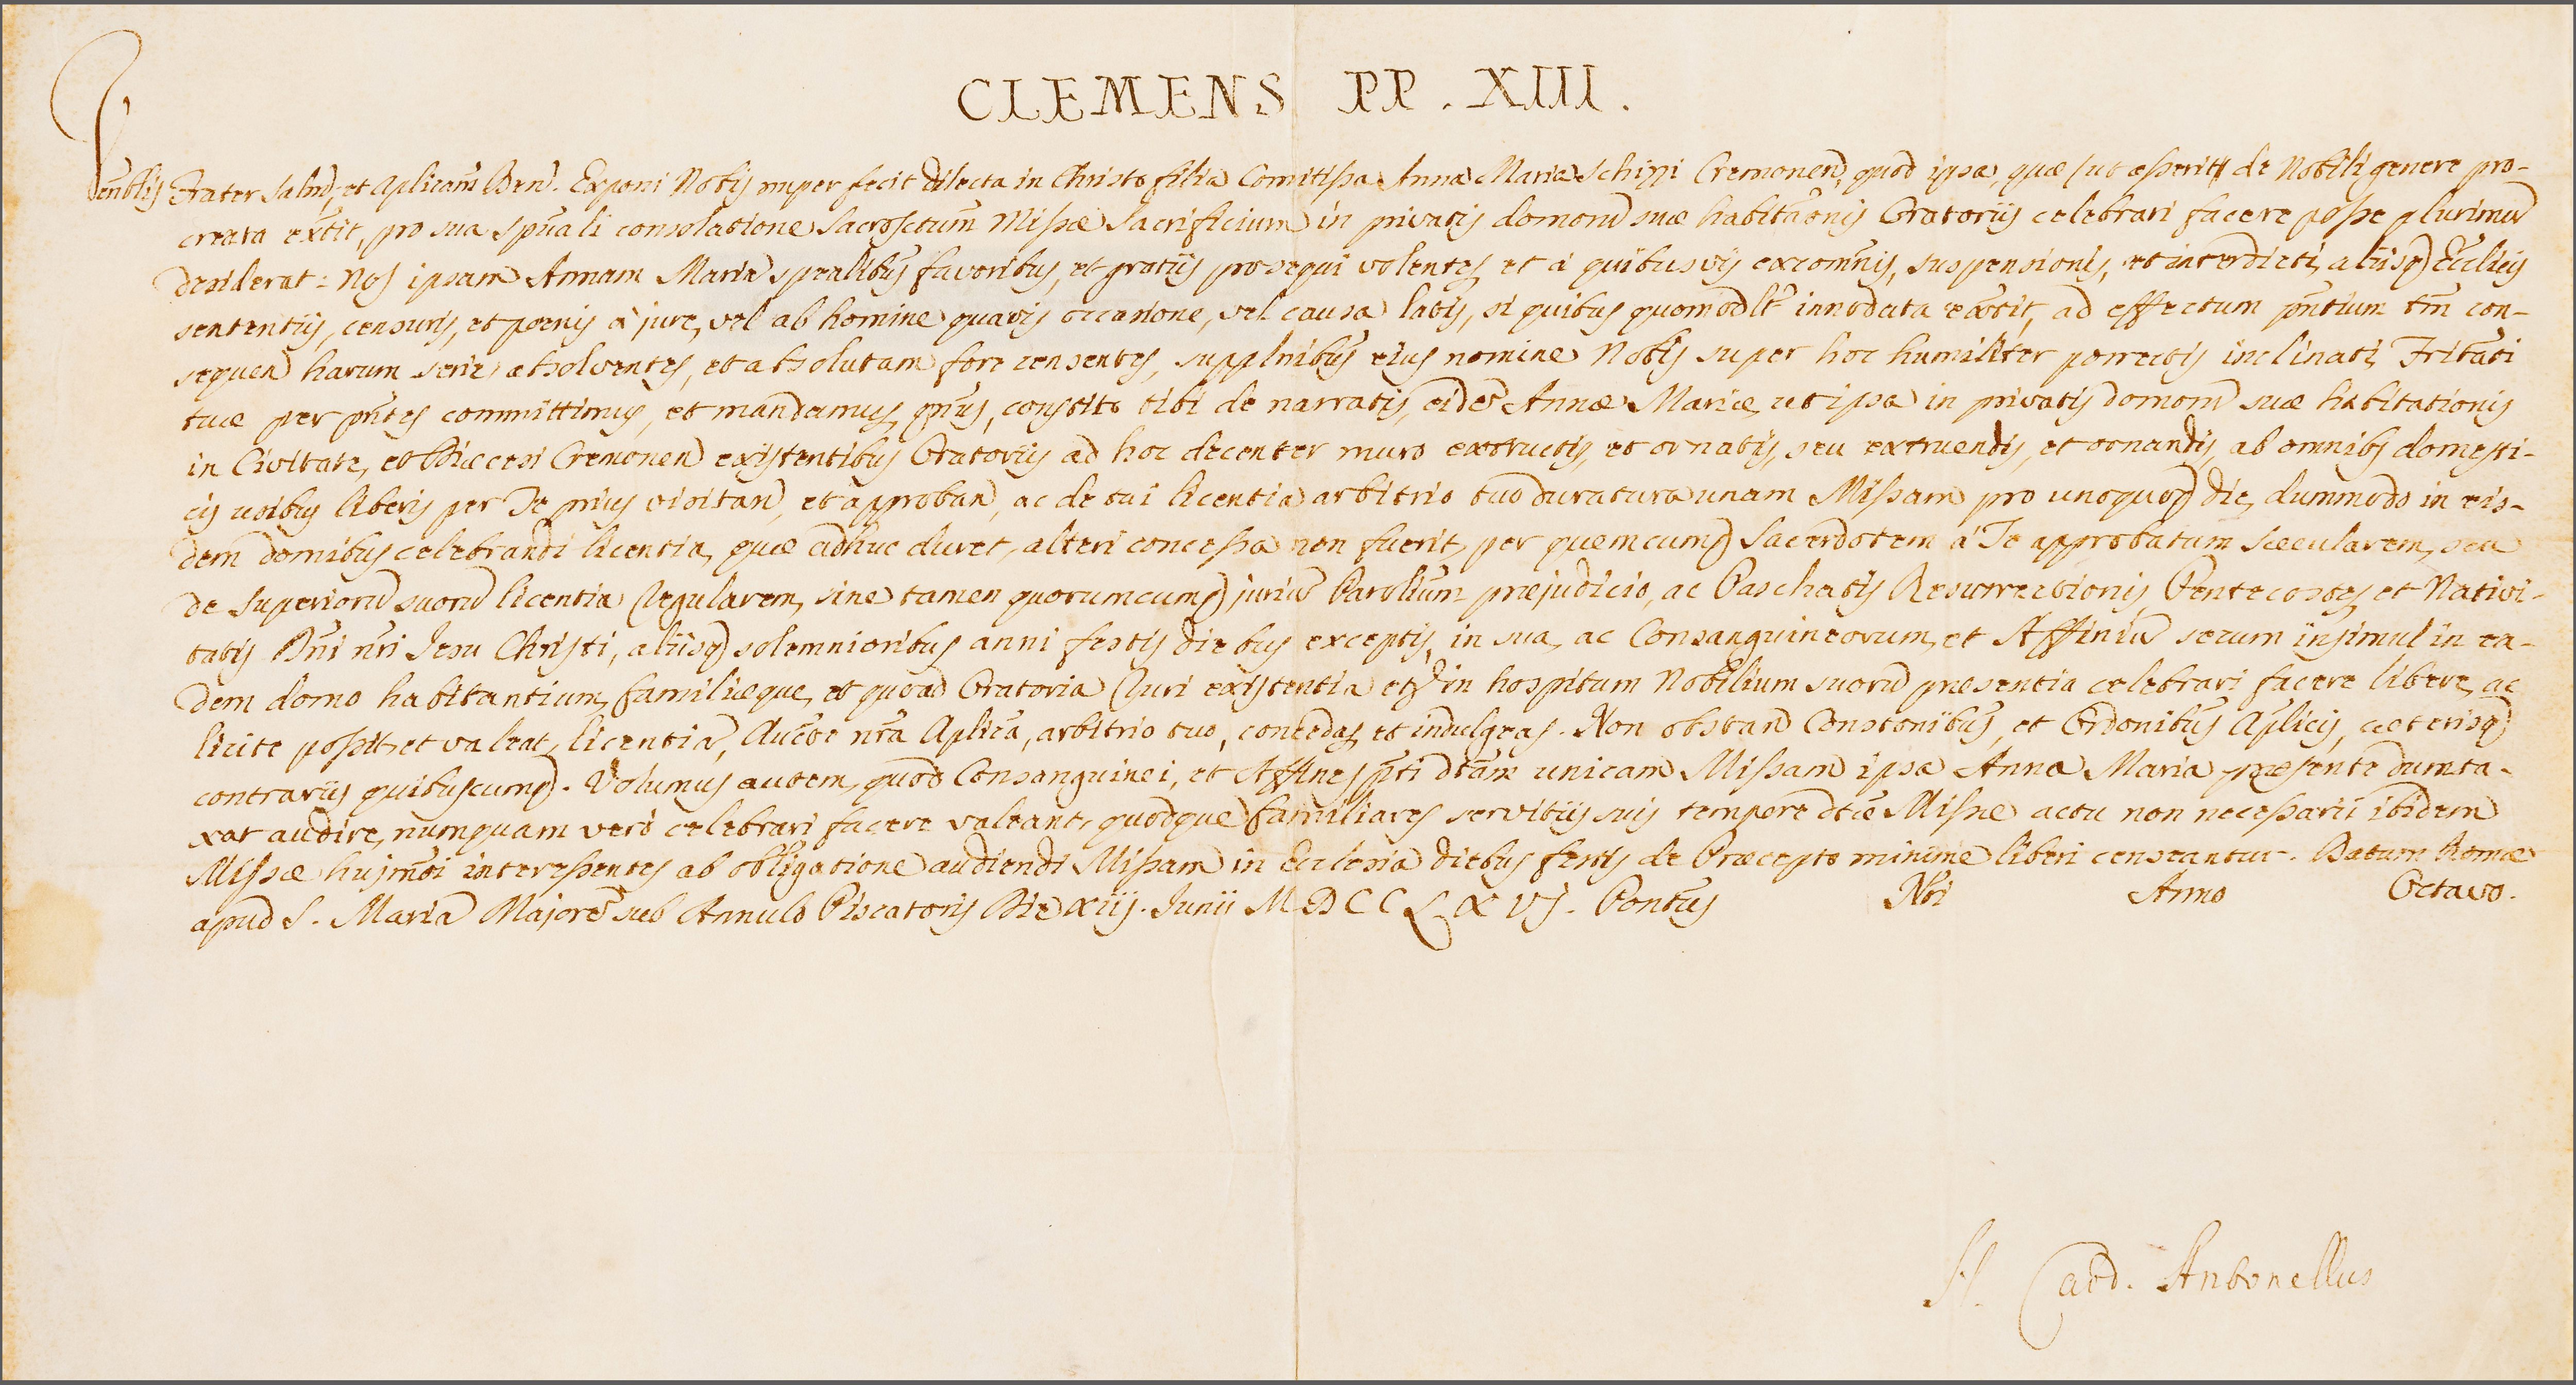 CLEMENS PP. XIII.
Venblis Frater Salm̄, et Aplicam̄ Ben̄. Exponi Nobis nuper fecit dilecta in Christo filia Comitissa Anna Maria Schizzi Cremonen̄, quod ipsa, quæ, ut asserit, de Nobili genere pro-
creata extit̄, pro sua spūali consolatione Sacrosctum̄ Missæ Sacrificium in privatis domorū suæ habitāonis Oratoriis celebrari facere posse plurimū
desiderat: Nos ipsam Annam Mariā spealibus̄ favoribus, et gratiis prosequi volentes, et a quibusvis excomn̄is, suspensionis, et interdicti, aliisq̃ Eccl̄icis
sententiis, censuris, et poenis a jure, vel ab homine quavis occasione, vel causa latis, si quibus quomodlt̄ innodata extit̄, ad effectum pn̄tium tm̄ con-
sequen̄ harum serie absolventes, et absolutam fore censentes, supplnibus̄ ejus nomine Nobis super hoc humiliter porrectis inclinati, Frit̄ati
tuæ per pn̄tes committimus, et mandamus, qn̄us, constito tibi de narratis, eidē Annæ Mariæ, ut ipsa in privatis domorū suæ habitationis
in Civitate, et Diœcesi Cremonen̄ existentibus Oratoriis ad hoc decenter muro extructis, et ornatis, seu extruendis, et ornandis, ab omnibs domesti-
cis usibus liberis per Te prius visitan̄, et approban̄, ac de tui licentia arbitrio tuo duratura unam Missam pro unoquoq̃ die, dummodo in eis-
dem domibus celebrandi licentia, quæ adhuc duret, alteri concessa non fuerit, per quemcumq̃ Sacerdotem a Te approbatum Sæcularem, seu
de Superiorū suorū licentia Regularem, sine tamen quorumcumq̃ juriū Parōlium præjudicio, ac Paschatis Resurrectionis, Pentecostes, et Nativi-
tatis Dn̄i nr̄i Jesu Christi, aliisq̃ solemnioribus anni festis diebus exceptis, in sua, ac Consanguineorum, et Affiniū secum insimul in ea-
dem domo habitantium, familiæque, et quoad Oratoria Ruri existentia et in hospitum Nobilium suorū præsentia celebrari facere libere, ac
licite possit, et valeat, licentiā, Auc̄te nrā Aplicā, arbitrio tuo, concedas, et indulgeas. Non obstan̄ Constonibus̄, et Ordonibus̄ Aplicis̄, cæterisq̃
contrariis quibuscumq̃. Volumus autem, quod Consanguinei, et Affines pti dtam̄ unicam Missam ipsa Anna Maria præsente dumta-
xat audire, numquam vero celebrari facere valeant, quodque familiares servitiis suis tempore dtǣ Missæ actu non necessarii ibidem
Missæ hujmōi interessentes ab obligatione audiendi Missam in Ecclesia diebus festis de Præcepto minime liberi censeantur. Datum Romæ
apud S. Mariā Majorē sub Annulo Piscatoris Die xiij. Junii MDCCLXVJ. Pontus̄ Nri Anno Octavo.
Card. Antonellus